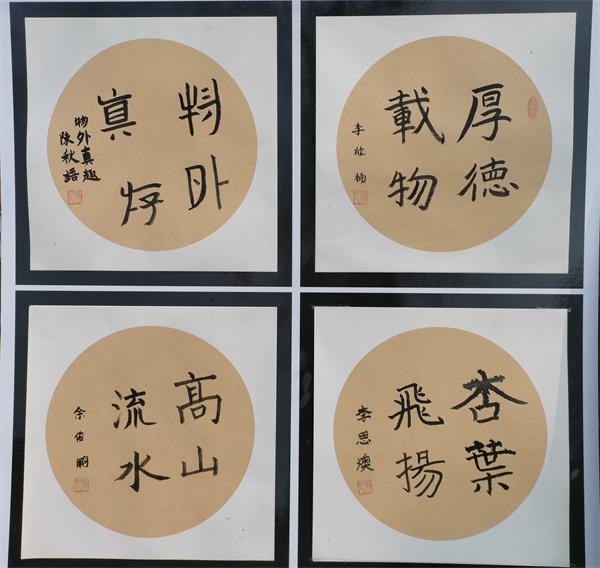 物外
真存
物外真趣
陳秋語
厚德
載物
李欣楠
高山
流水
余俊鹏
杏葉
飛揚
李思燠